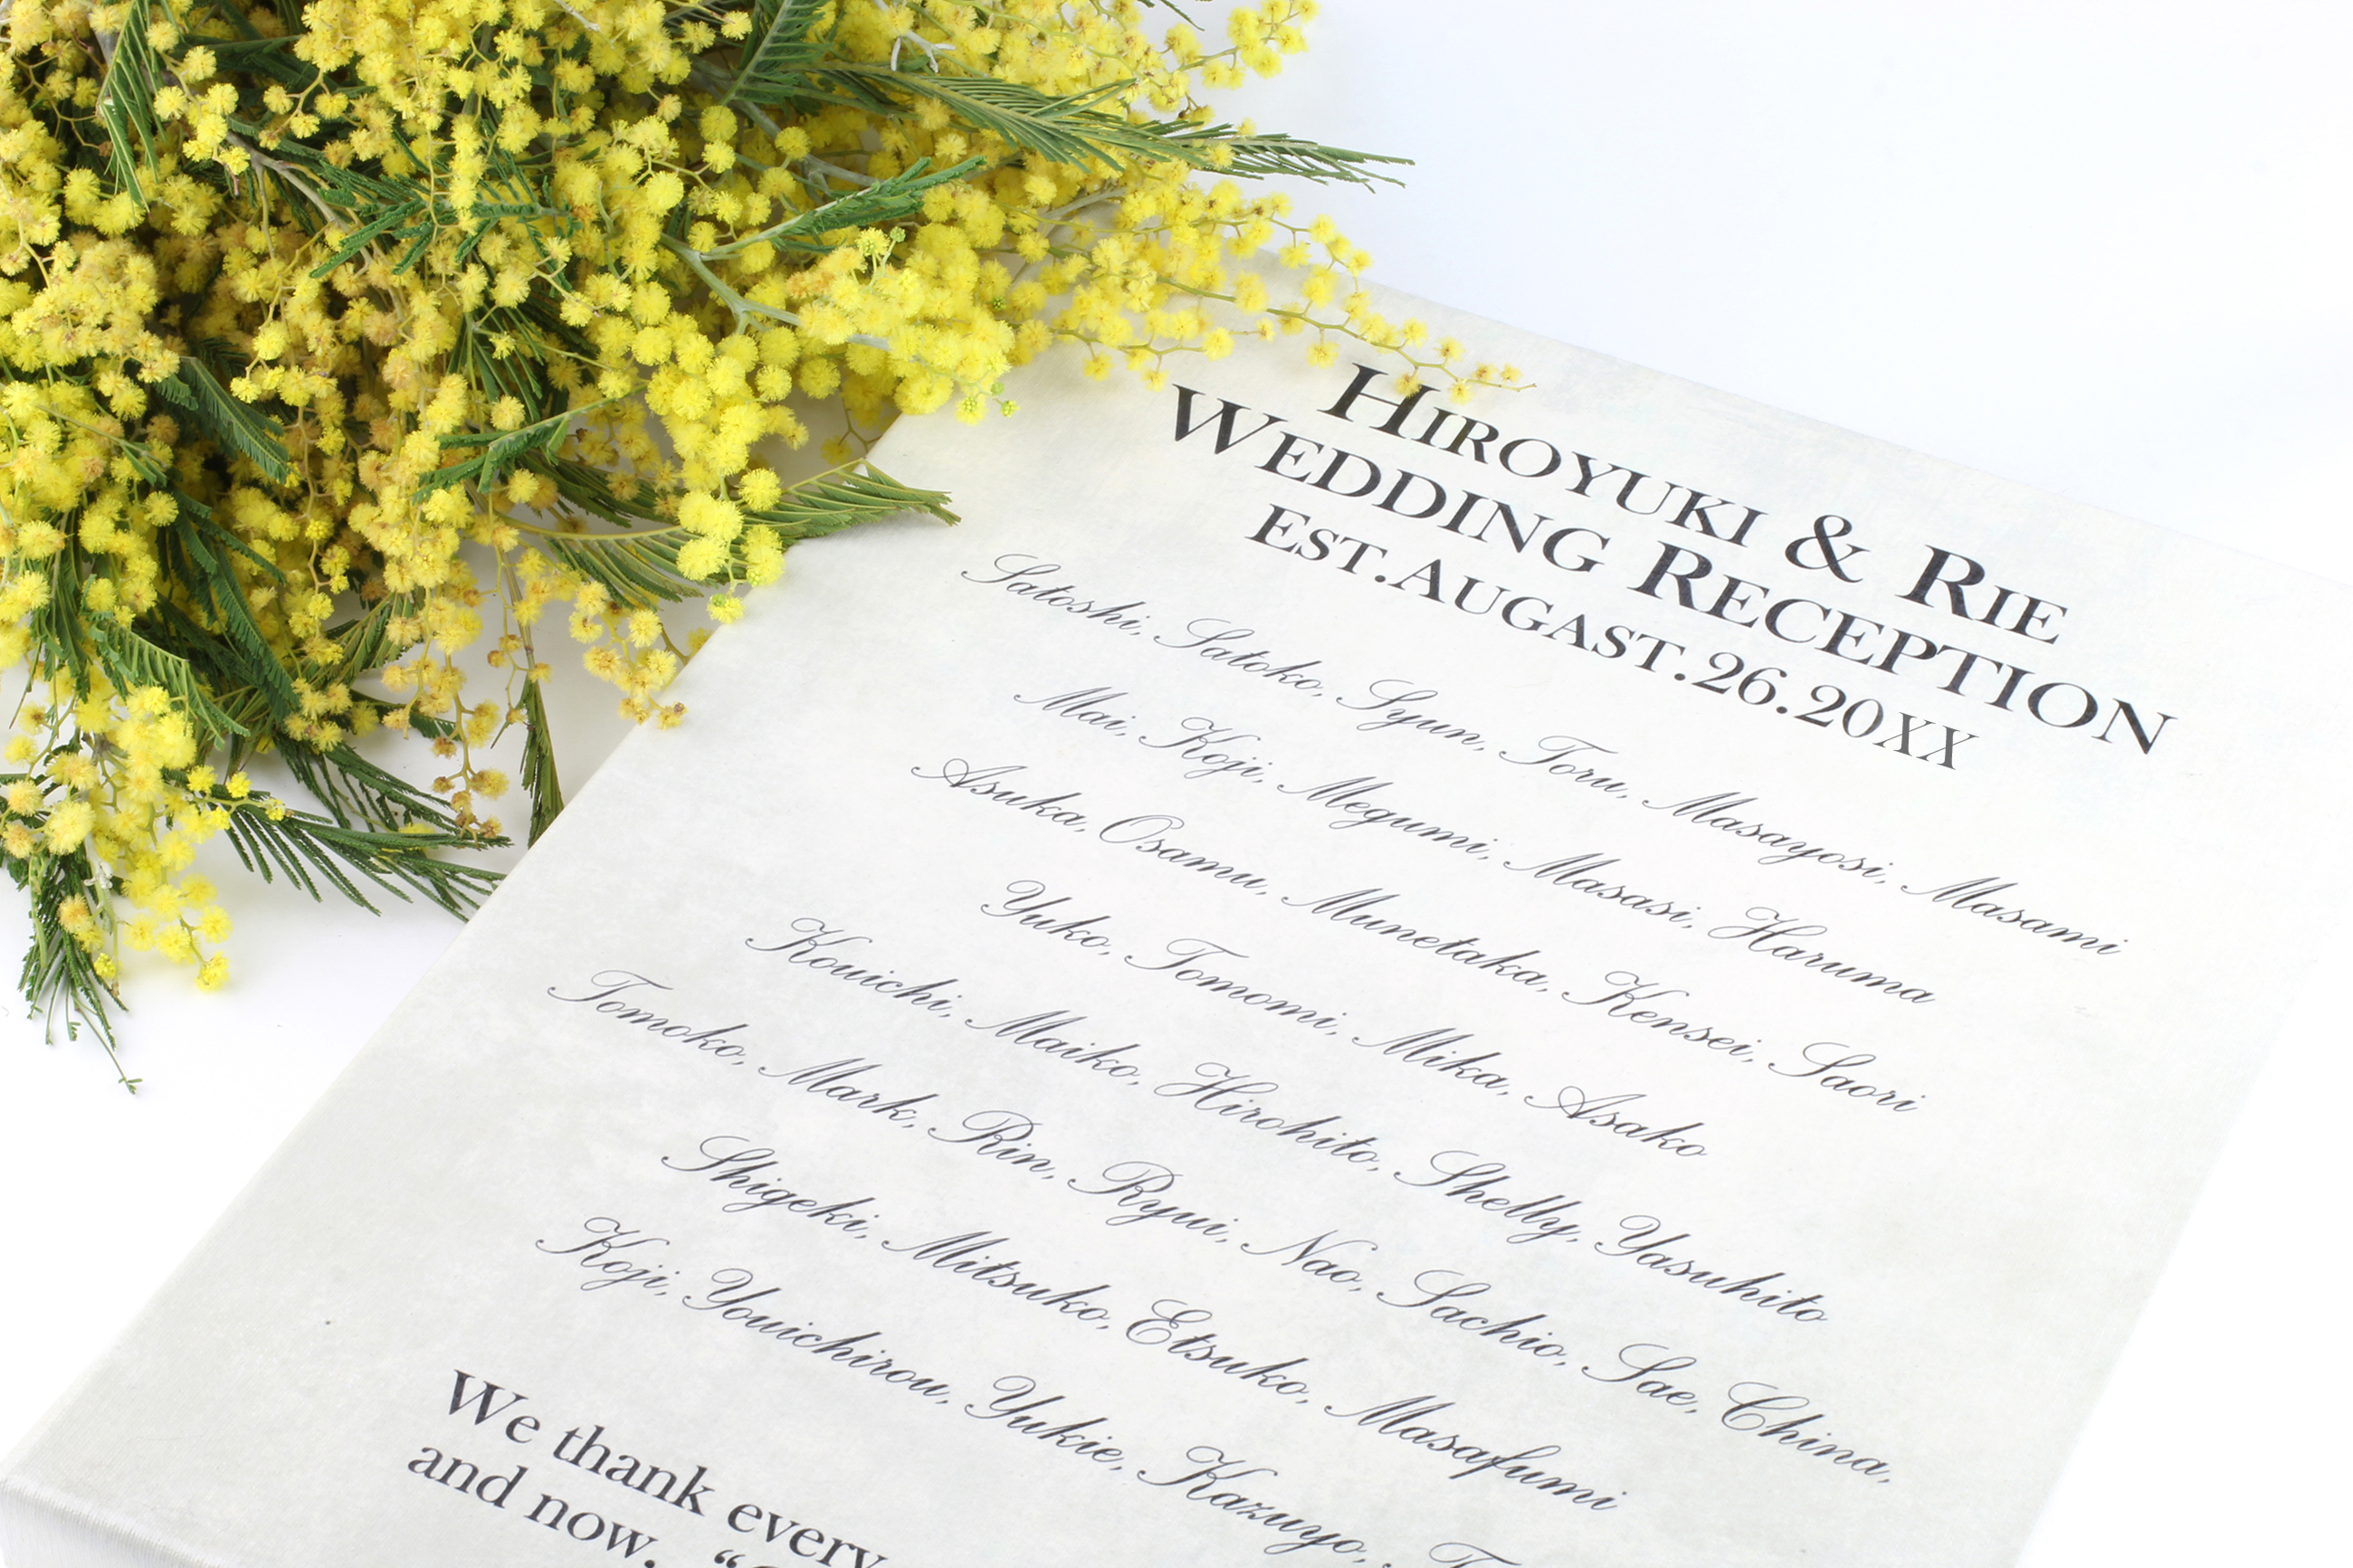 HIROYUKI & RIE
WEDDING RECEPTION
EST.AUGAST.26.20XX
Satoshi, Satoko, Syun, Toru, Masayosi, Masami
Mai, Koji, Megumi, Masasi, Haruma
Asuka, Osamu, Munetaka, Kensei, Saori
Yuko, Tomomi, Mika, Asako
Kouichi, Maiko, Hirohito, Shelly, Yasuhito
Tomoko, Mark, Rin, Ryui, Nao, Sachio, Sae, China,
Shigeki, Mitsuko, Etsuko, Masafumi
Koji, Youichirou, Yukie, Kazuyo,
We thank every
and now.